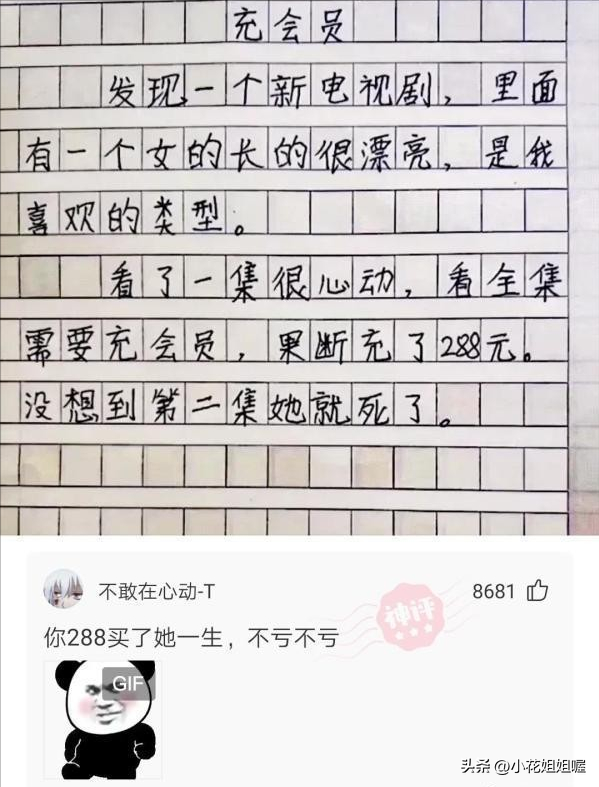 充会员
发现一个新电视剧，里面
有一个女的长的很漂亮，是我
喜欢的类型。
看了一集很心动，看全集
需要充会员，果断充了288元。
没想到第二集她就死了。
不敢在心动-T
神评
8681
你288买了她一生，不亏不亏
GIF
头条 @小花姐姐喔